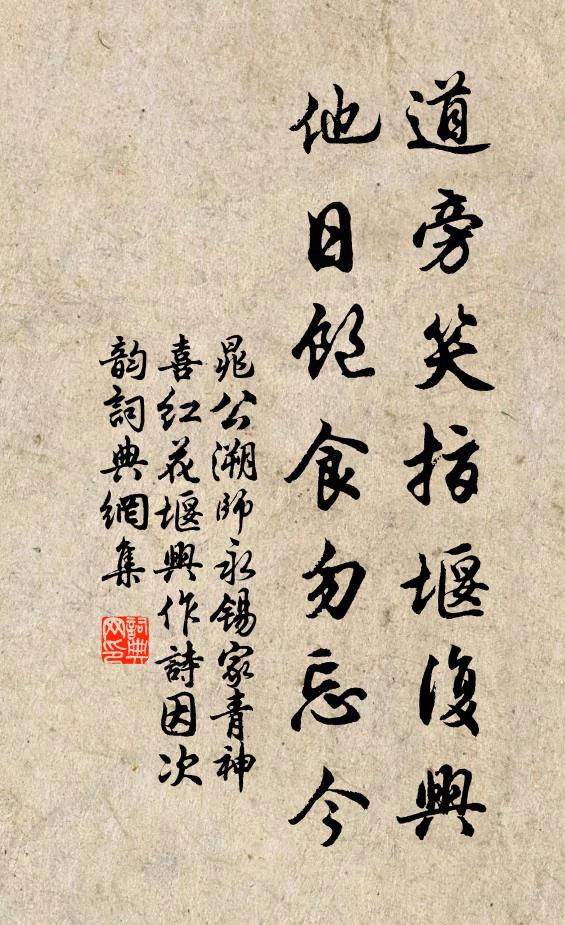 道旁笑指堰復興
他日飽食勿忘今
晁公溯師永錫家青神
喜紅花堰興作詩因次
韵詞典網集
詞典網印